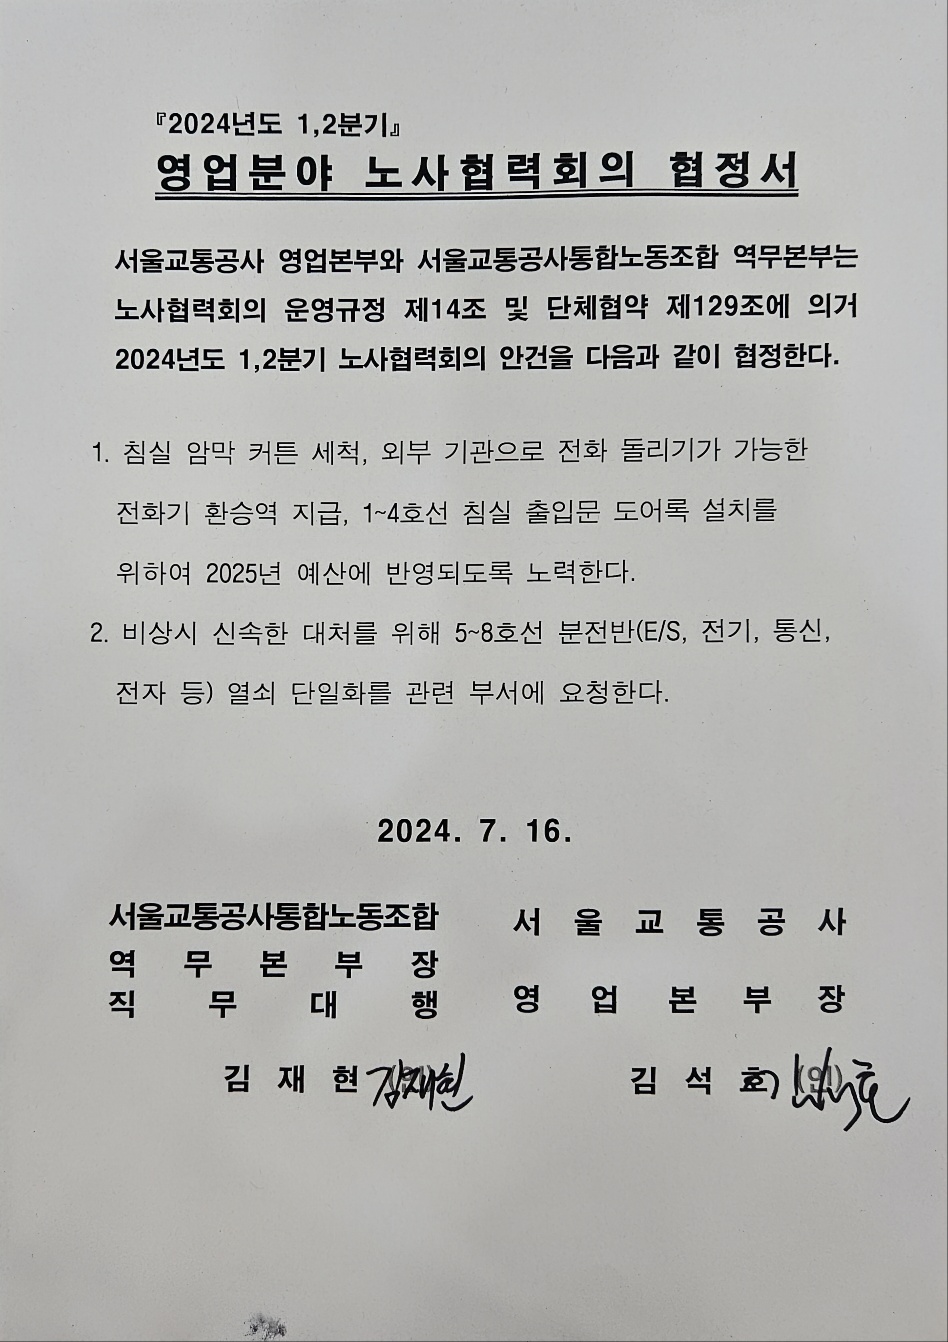 『2024년도 1,2분기』
영업분야 노사협력회의 협정서
서울교통공사 영업본부와 서울교통공사통합노동조합 역무본부는
노사협력회의 운영규정 제14조 및 단체협약 제129조에 의거
2024년도 1,2분기 노사협력회의 안건을 다음과 같이 협정한다.
1. 침실 암막 커튼 세척, 외부 기관으로 전화 돌리기가 가능한
전화기 환승역 지급, 1~4호선 침실 출입문 도어록 설치를
위하여 2025년 예산에 반영되도록 노력한다.
2. 비상시 신속한 대처를 위해 5~8호선 분전반(E/S, 전기, 통신,
전자 등) 열쇠 단일화를 관련 부서에 요청한다.
2024. 7. 16.
서울교통공사통합노동조합
역무본부장
직무대행
김재현 김재현
서울교통공사
영업본부장
김석호 (인)